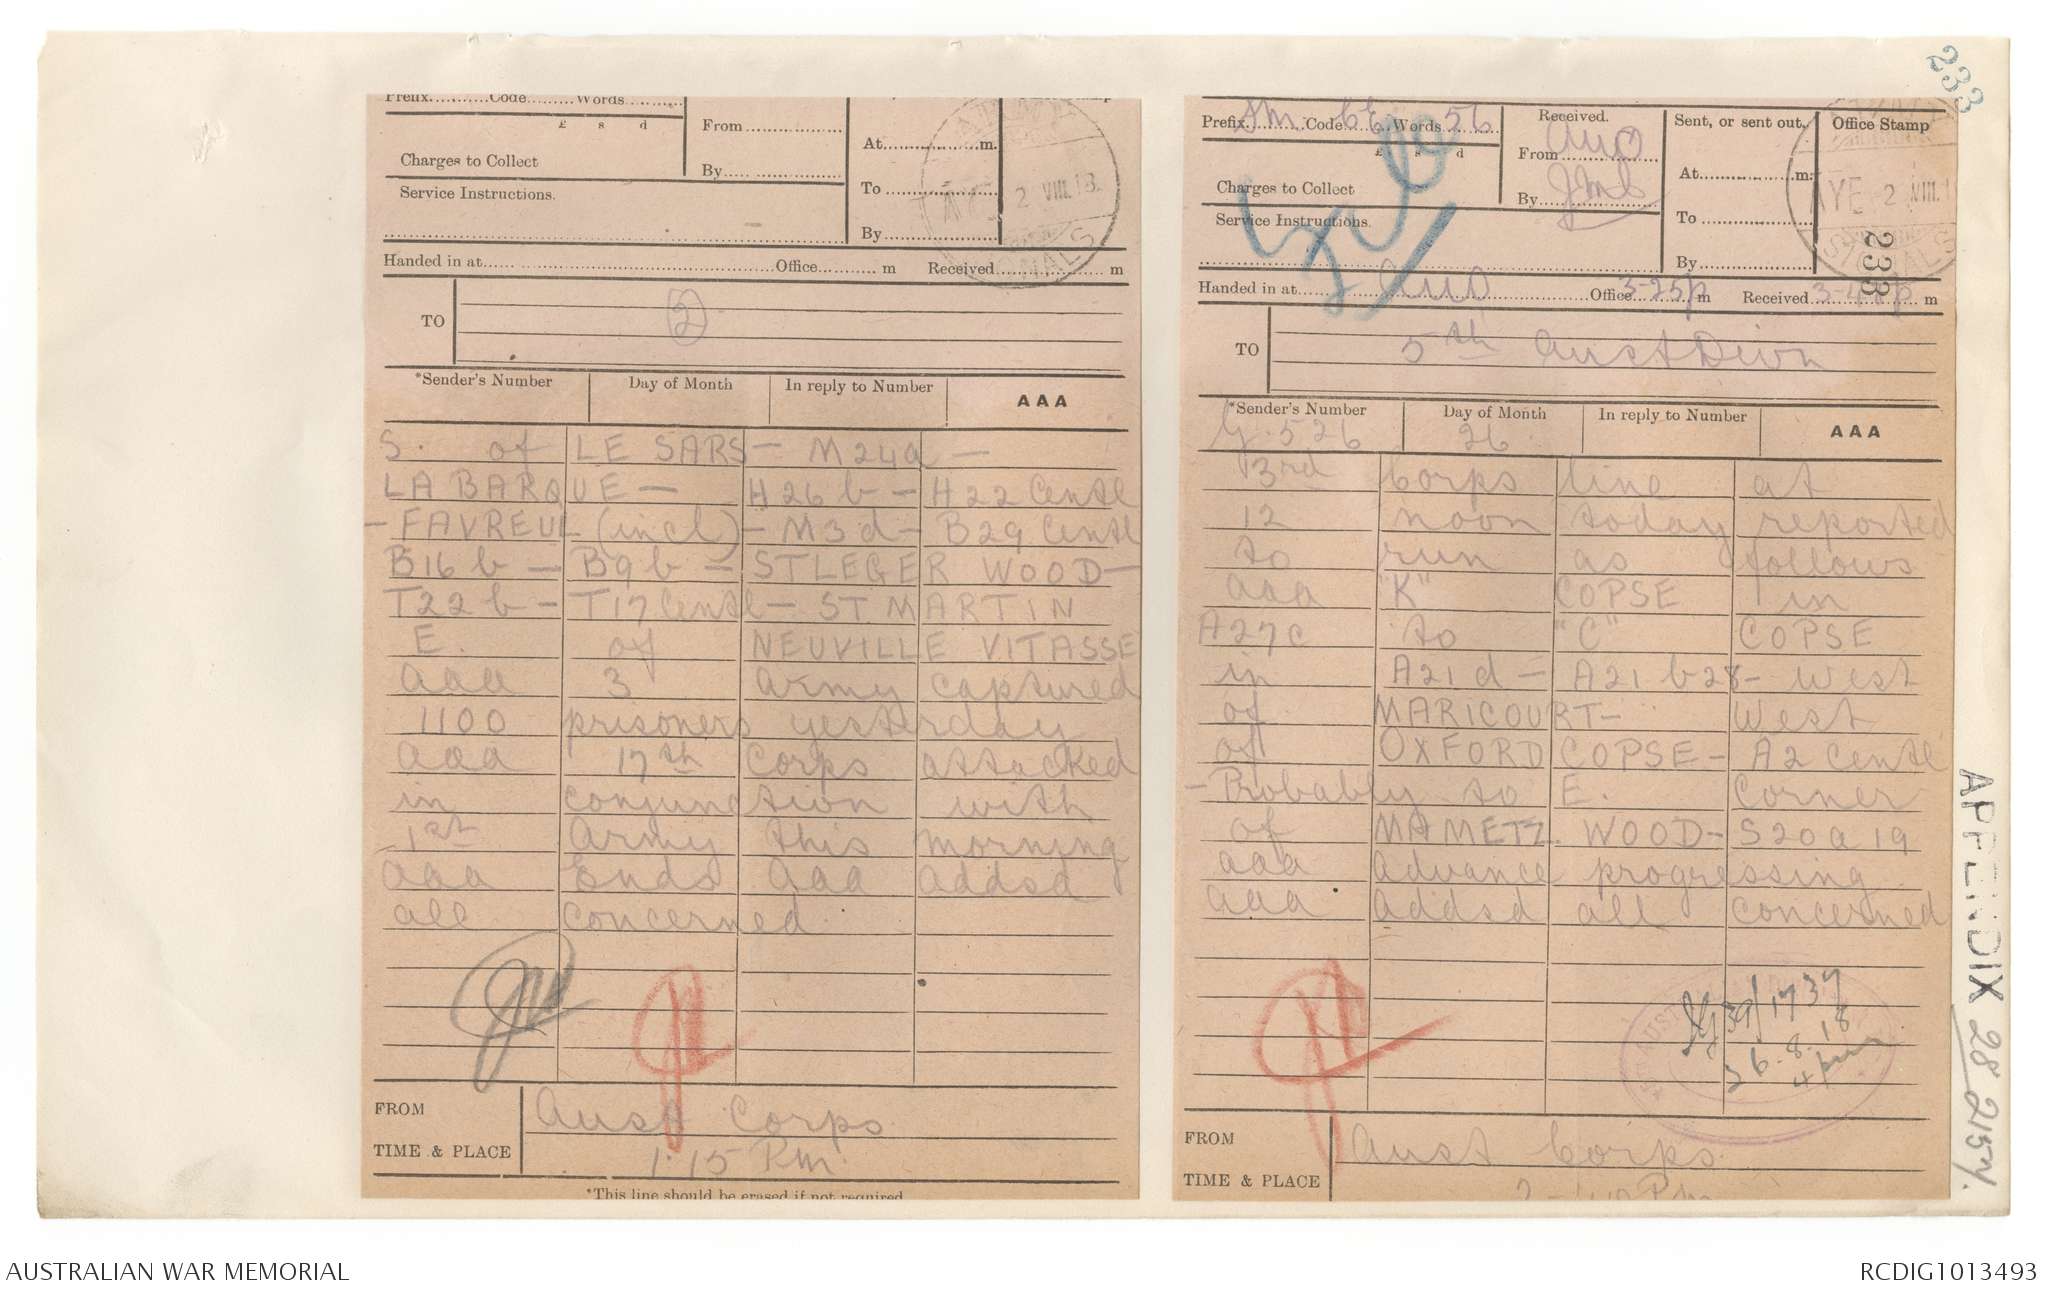 233
Prefix..........Code.........Words.........
£ s d
Charges to Collect
Service Instructions.
From
By
At.................m.
To
By
2 VIII.18.
SIGNALS
Handed in at......Office...........m Received.................m
TO
2
*Sender's Number Day of Month In reply to Number AAA
S. of LE SARS - M24a -
LA BARQUE - H26b - H22 Centl
- FAVREUL (incl) - M3d - B29 Centl
B16b - B9b - ST LEGER WOOD -
T22b - T17 Centl - ST MARTIN
E. of NEUVILLE VITASSE
aaa 3 Army captured
1100 prisoners yesterday
aaa 17th Corps attacked
in conjunction with
1st Army this morning
aaa Ends aaa addsd
all concerned
FROM Aust Corps
TIME & PLACE 1.15 P.m.
*This line should be erased if not required
Prefix Sm Code Words 56
£ s d
Charges to Collect
Service Instructions.
Received.
From
By
Sent, or sent out.
At.................m.
To
By
Office Stamp
AYE 2 VIII.1
SIGNALS
233
Handed in at Office 3-25p m Received m
TO 5th Aust Divn
*Sender's Number Day of Month In reply to Number AAA
G.526 26
3rd Corps line at
12 noon today reported
to run as follows
aaa "K" COPSE in
A27c to "C" COPSE
in A21d - A21b28 - West
of MARICOURT - West
of OXFORD COPSE - A2 Centl
- Probably to E. Corner
of MAMETZ WOOD - S20a19
aaa Advance progressing
aaa Addsd all concerned
39/1737
26.8.18
4pm
FROM Aust Corps
TIME & PLACE
APPENDIX 28
AUSTRALIAN WAR MEMORIAL
RCDIG1013493